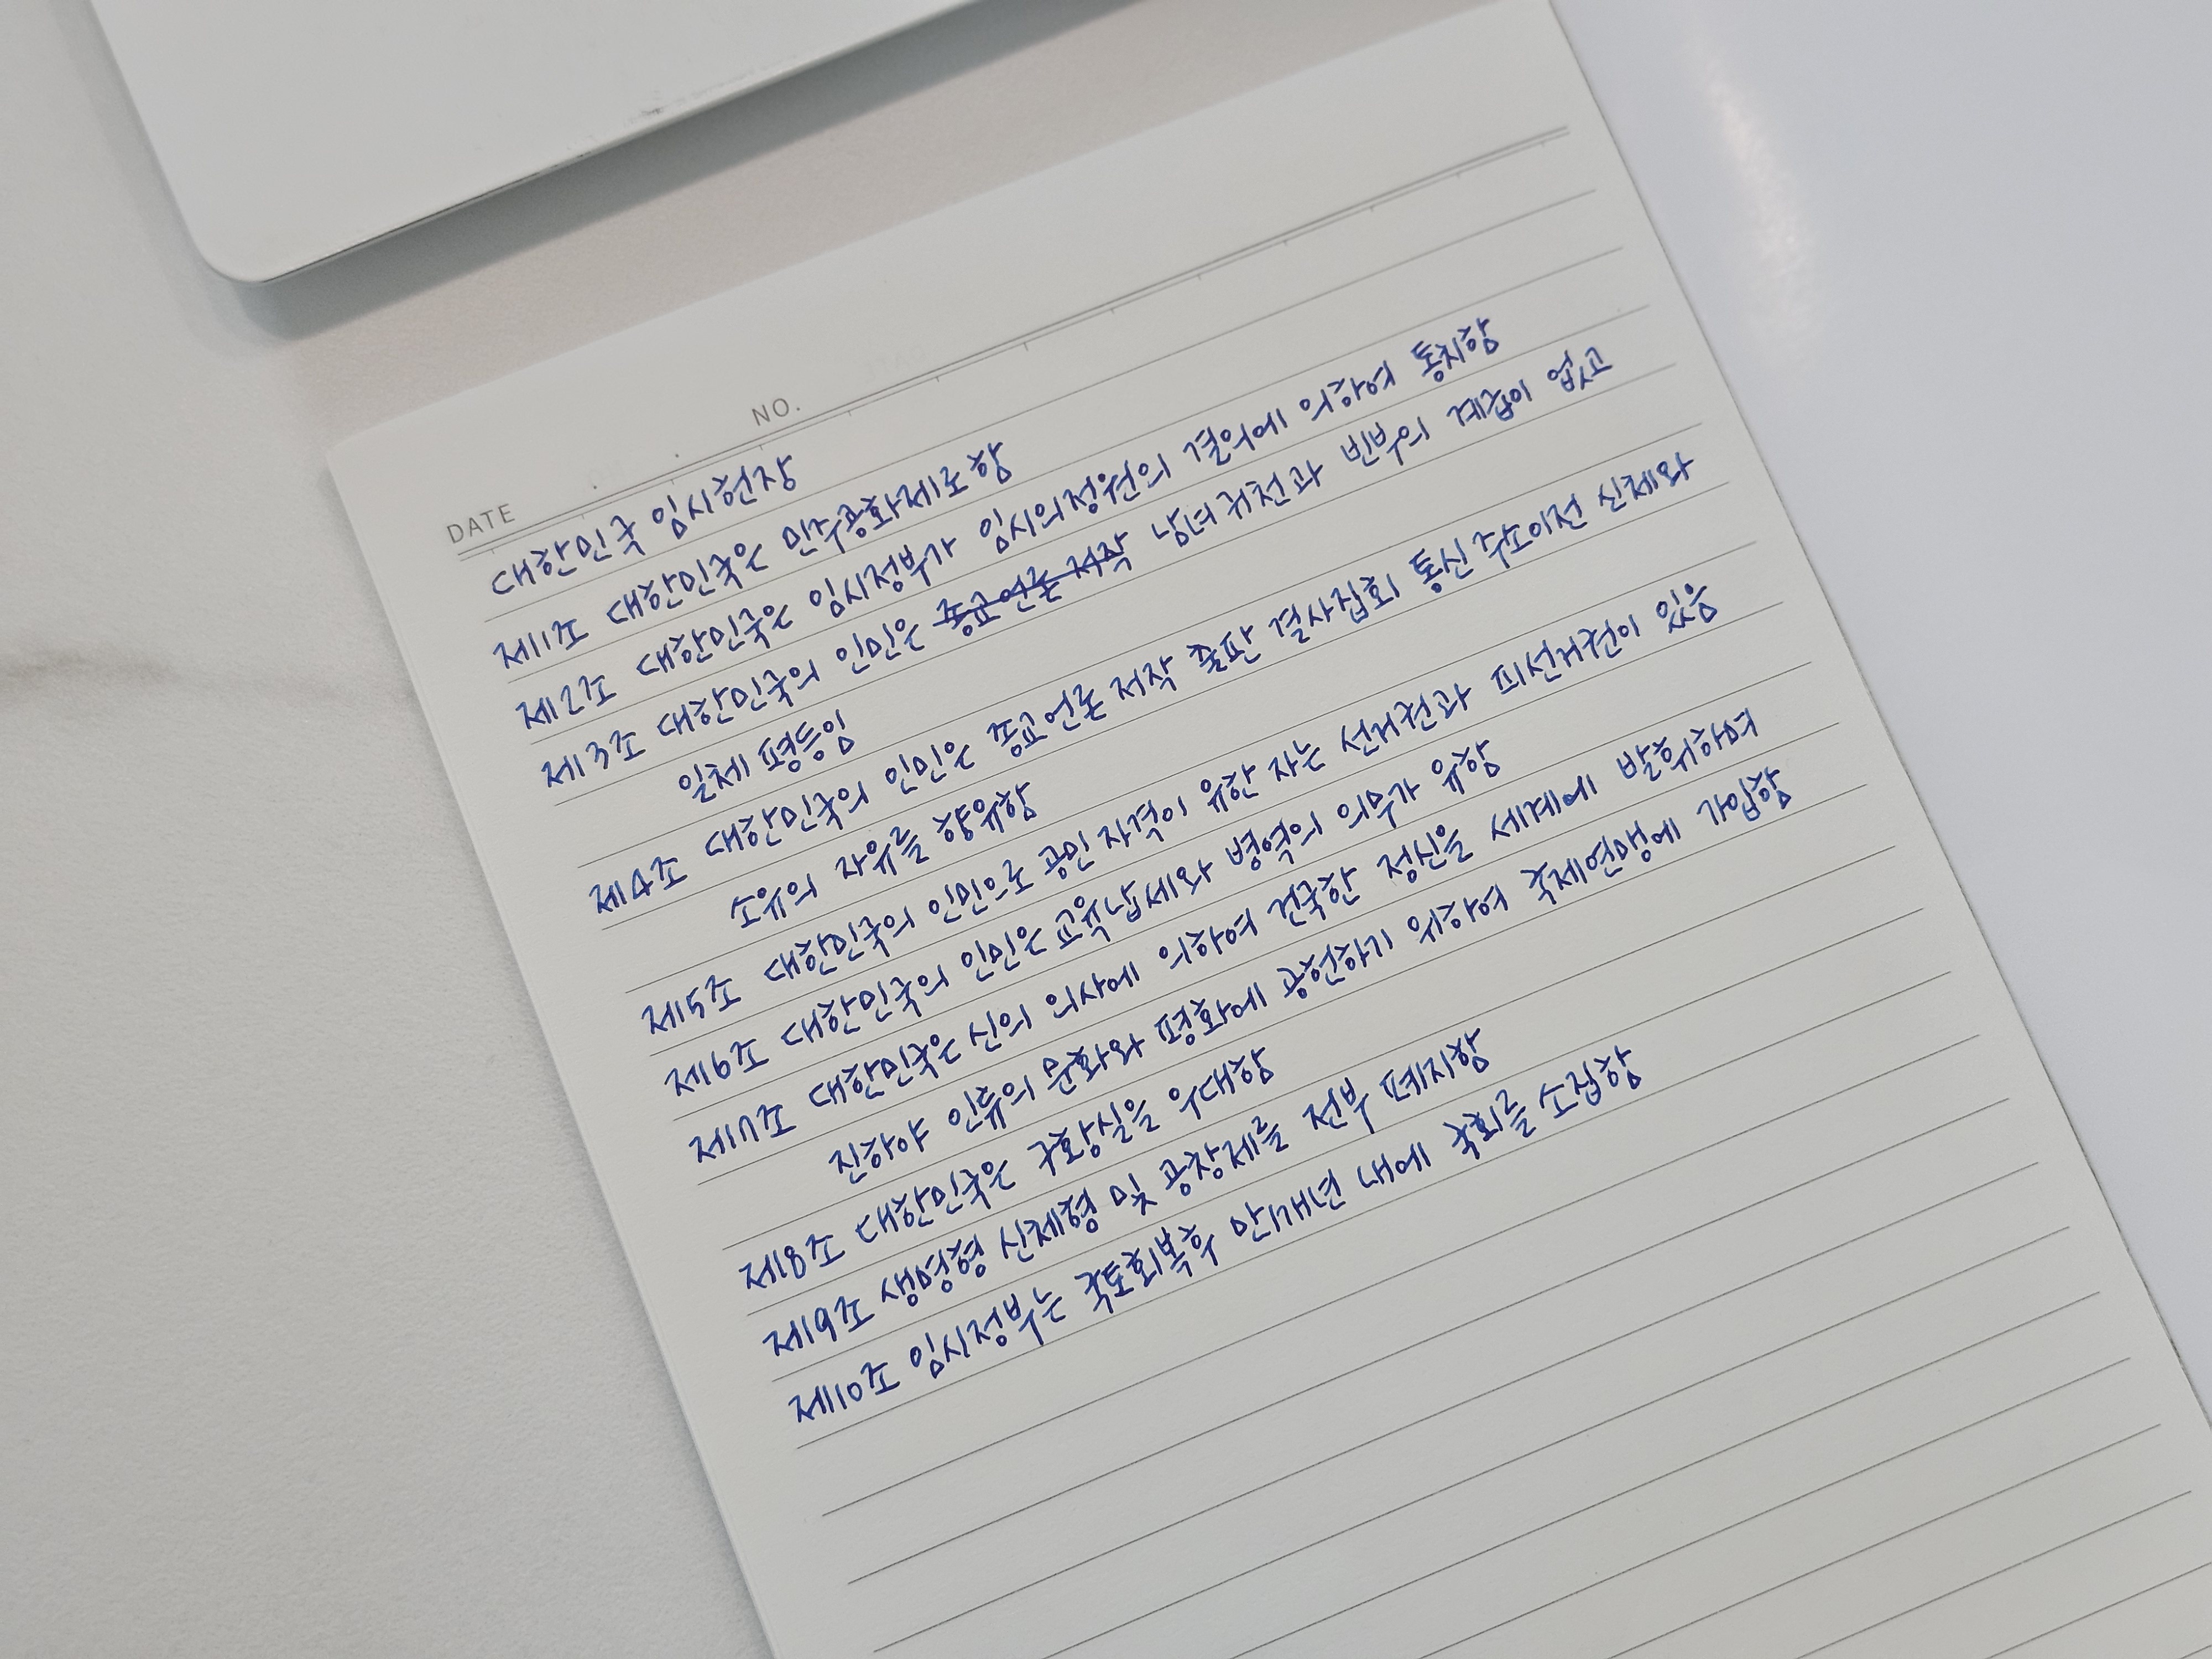 DATE NO.
대한민국 임시헌장
제1조 대한민국은 민주공화제로 함
제2조 대한민국은 임시정부가 임시의정원의 결의에 의하여 통치함
제3조 대한민국의 인민은 종교언론 저작 남녀귀천과 빈부의 계급이 없고
일체 평등임
제4조 대한민국의 인민은 종교언론 저작 출판 결사집회 통신 주소이전 신체와
소유의 자유를 향유함
제5조 대한민국의 인민으로 공민 자격이 유한 자는 선거권과 피선거권이 있음
제6조 대한민국의 인민은 교육납세와 병역의 의무가 유함
제7조 대한민국은 신의 의사에 의하여 건국한 정신을 세계에 발휘하며
진하야 인류의 문화와 평화에 공헌하기 위하여 국제연맹에 가입함
제8조 대한민국은 구황실을 우대함
제9조 생명형 신체형 및 공창제를 전부 폐지함
제10조 임시정부는 국토회복후 만1개년 내에 국회를 소집함